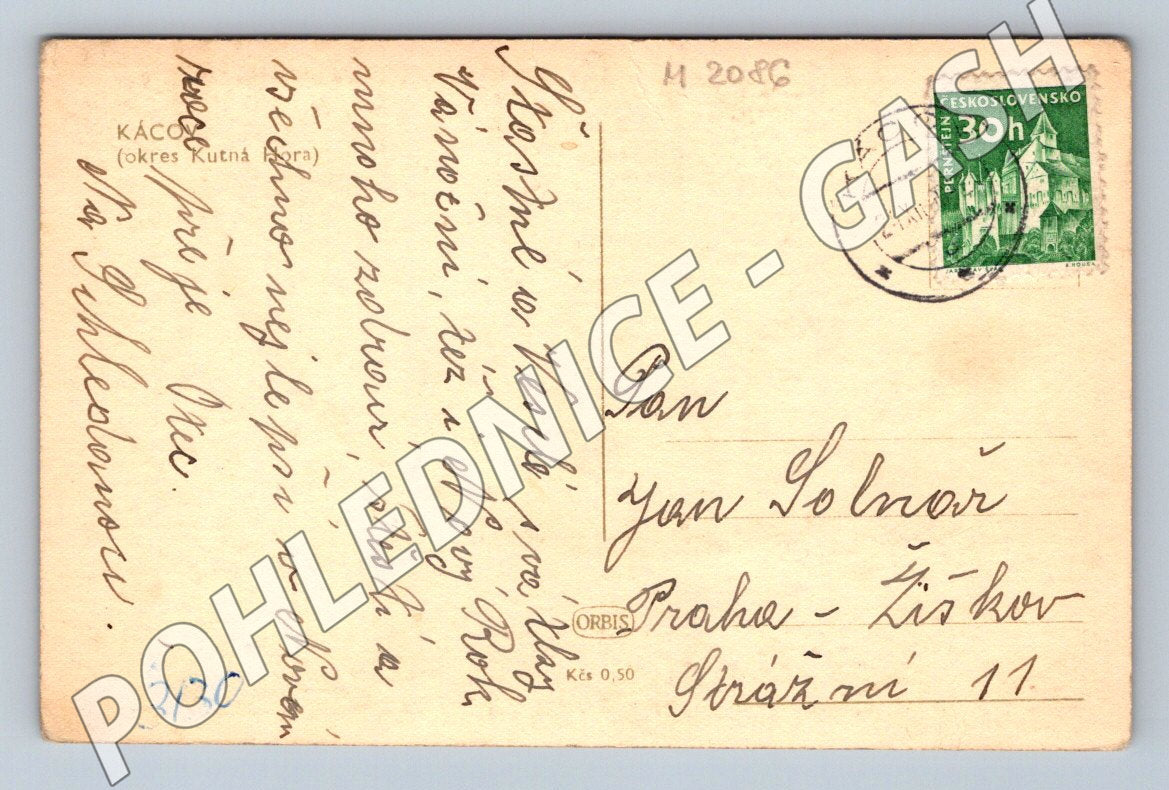 M 2086
KÁCOV
(okres Kutná Hora)
ČESKOSLOVENSKO
30h
PERNŠTEJN
KÁCOV
Šťastné a Veselé svátky
Vánoční, též i Nový Rok
mnoho zdraví, štěstí a
všechno nejlepší v Novém
roce přeje
Na Shledanou.
Pan
Jan Solnař
Praha - Žižkov
Strážní 11
ORBIS
Kčs 0,50
3/30
POHLEDNICE - GASH